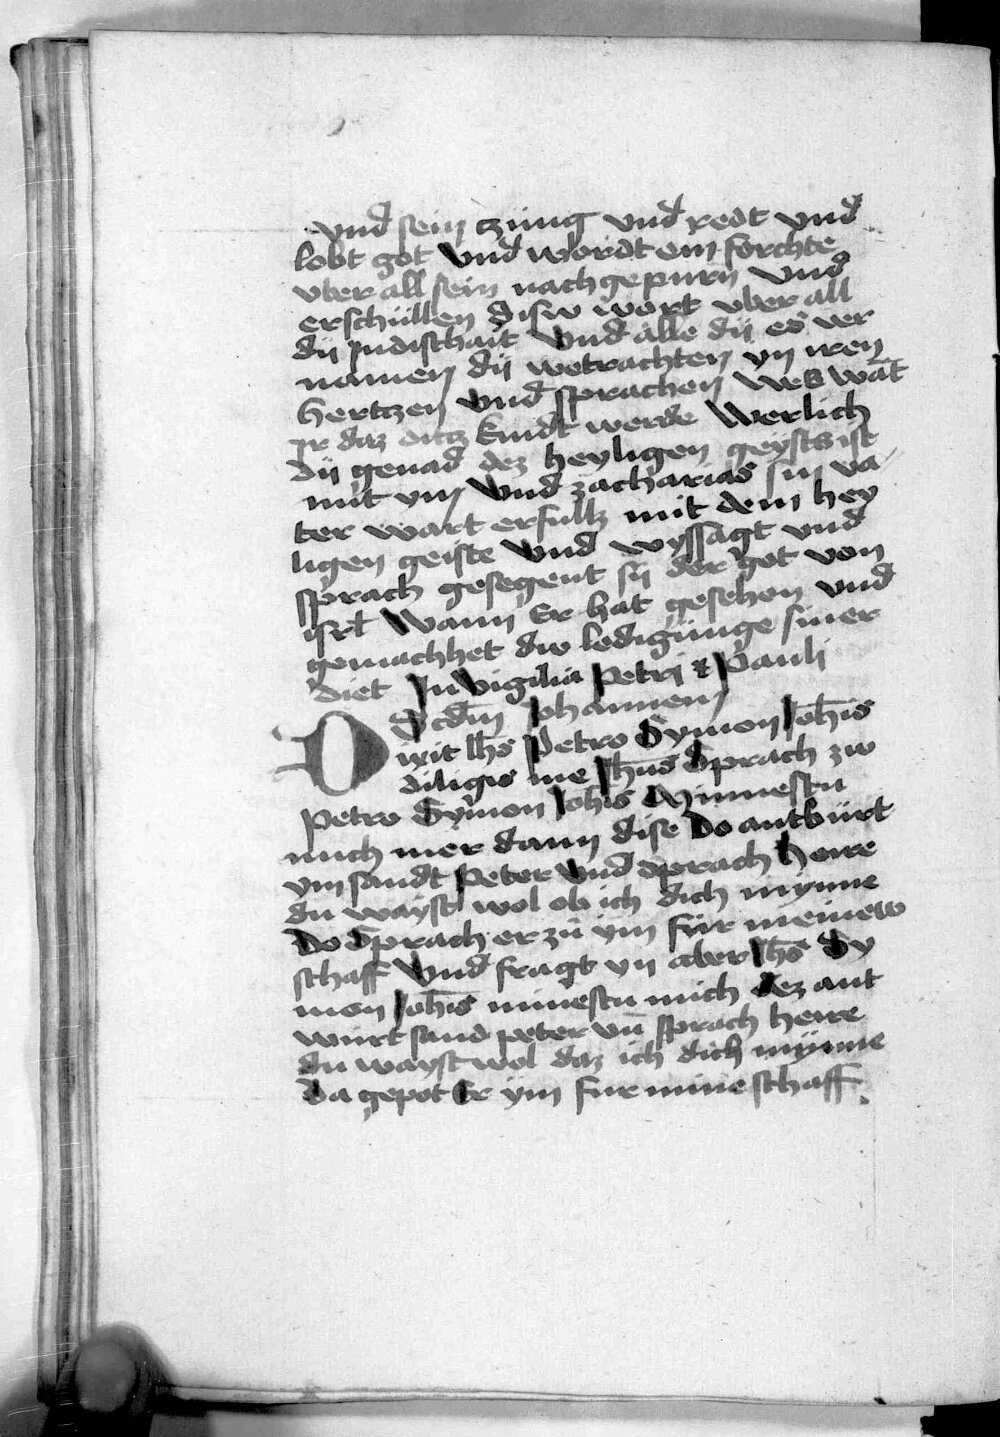 vnd sein züng vnd redt vnd
lobt got vnd wordt ein forchte
vber all sein nachgepurn vnd
erschüllen disw wort vber all
dij Judischait vnd alle dij es ver
namen dij wetrachten yn iren
hertzen vnd sprachen wes wāt
ir daz ditz kindt werde werlich
dij genad dez heyligen geysts ist
mit ym vnd zacharias sin va
ter wart erfultz mit dem hey
ligen geiste vnd wyssagt vnd
sprach gesegent sij der got von
isrl wann Er hat gesehen vnd
gemachhet dw ledigünge siner
diet In vigilia Petri et Pauli
Scdm Johannem
Dixit Ihs Petro Symon Johis
diligis me Ihus Sprach zw
Petro Symon Johis Minnestu
mich mer dann dise Do antbürt
ym sandt Peter vnd sprach herre
du wayst wol ob ich dich mynne
Do Sprach er zü ym für meinew
schaff vnd fragt yn aber Ihs Sy
mon Johis minestu mich dez ant
würt sand peter vn sprach herre
du wayst wol daz ich dich mynne
Da gepot Er ym fur mine schaff.